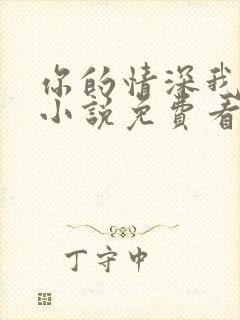 你的情深我
小说免費看
丁守中